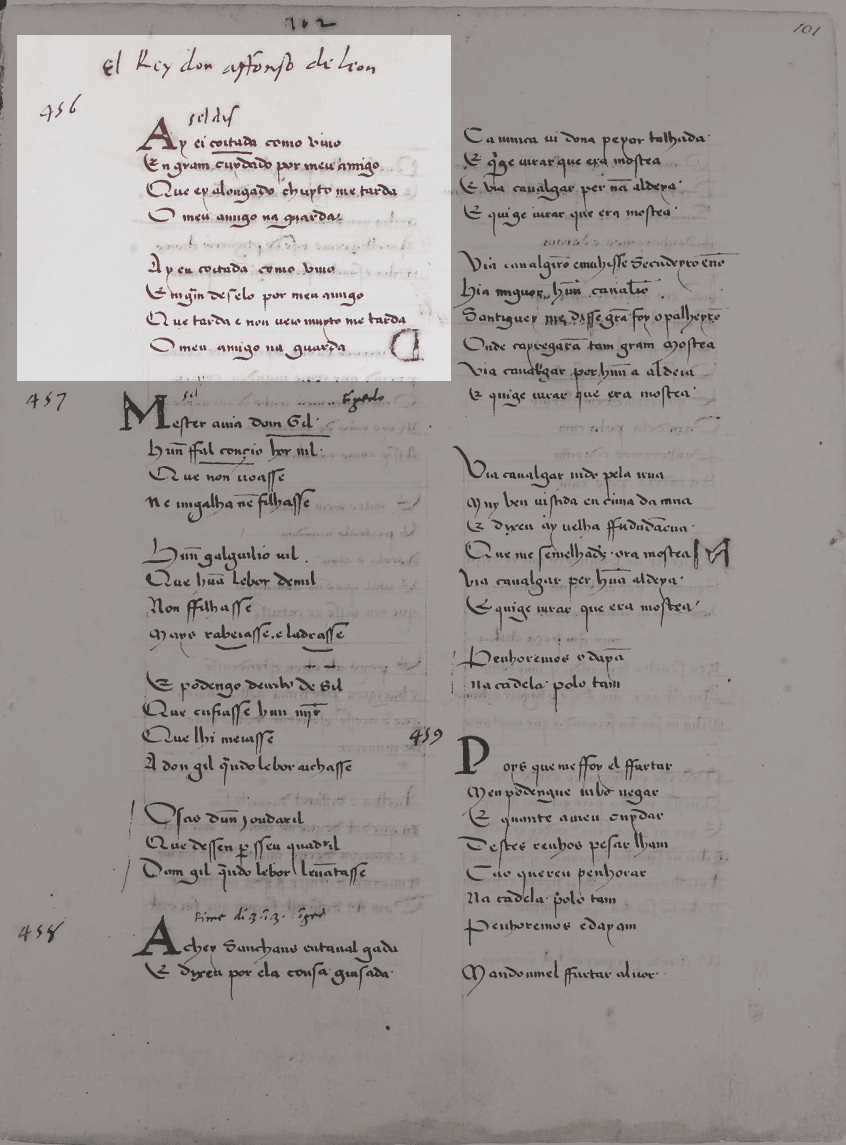 102
101
El Rey don affonso de leon
456
sel dis
Ay ei coitada como viuo
En gram cuydado por meu amigo
Que ey alongado muyto me tarda
O meu amigo na guarda
Ay eu coitada como viuo
En gram deseio por meu amigo
Que tarda e non veio muyto me tarda
O meu amigo na guarda
457
Mester auia dom Gil
Hũu ffal conçio bor nil
Que non uoasse
Ne migalha nẽ filhasse
Huũ galguilio uil
Que hũa Lebor demil
Non ffilhasse
Mays rabeiasse e ladrasse
E podengo de uilo de Sil
Que cusiasse huu myr
Que lhi meiasse
A don gil q̃ndo lebor achasse
Osas dun Joudaril
Que dessen p̱ sseu quadril
Dom gil q̃ndo lebor leuãtasse
458
Achey Sanchans entaual gada
E dixeu por ela cousa guisada
Ca nunca ui dona peyor talhada
E q̃ge iurar que era mostea
E via caualgar per nã aldeya
E quige iurar que era mostea
Via caualgar por hũa aldeia
E quige iurar que era mostea
Via caualgar indo pela rua
Muy ben uistida en cima da mua
E dixeu ay uelha ffududãcua
Que me semelhads ora mostea
Via caualgar per hũa aldeya
E quige iurar que era mostea
Penhoremos o dayã
na cadela polo tam
459
Poys que me ffoy el ffurtar
Meu podengue mho negar
E quante a meu cuydar
Destes penhos pesar lham
Cao quereu penhorar
Na cadela polo tam
Penhoremos e dayam
Mandoumel ffurtar aluor